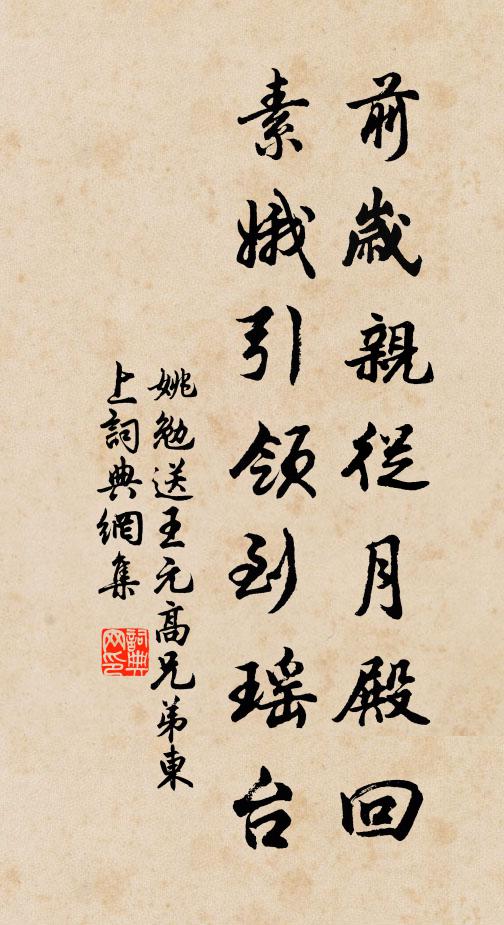 前歲親從月殿回
素娥引領到瑶台
姚勉送王元高兄弟東
上詞典網集
詞典网印